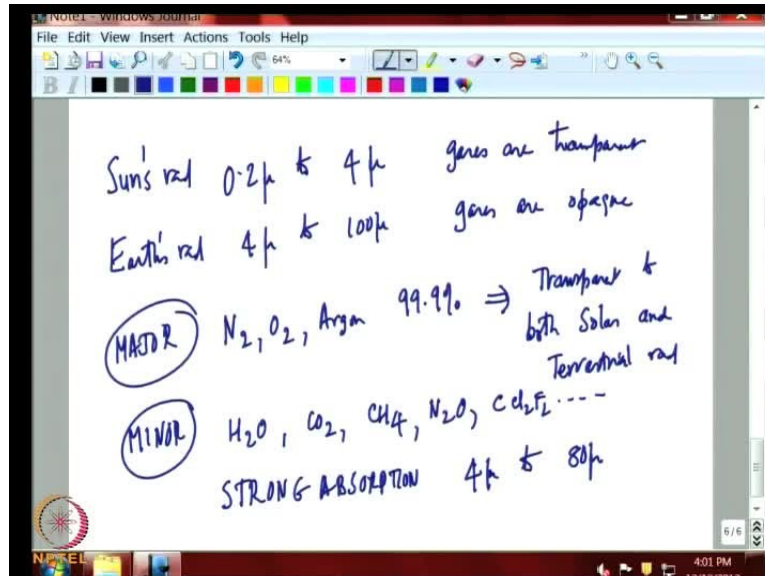 Note1 - Windows Journal
File Edit View Insert Actions Tools Help
64%
B I
Sun's rad 0.2μ to 4μ gases are transparent
Earth's rad 4μ to 100μ gases are opaque
MAJOR N2, O2, Argon 99.9% ⇒ Transparent to
both Solar and
Terrestrial rad
MINOR H2O, CO2, CH4, N2O, CCl2F2 ----
STRONG ABSORPTION 4μ to 80μ
6/6
NPTEL
4:01 PM